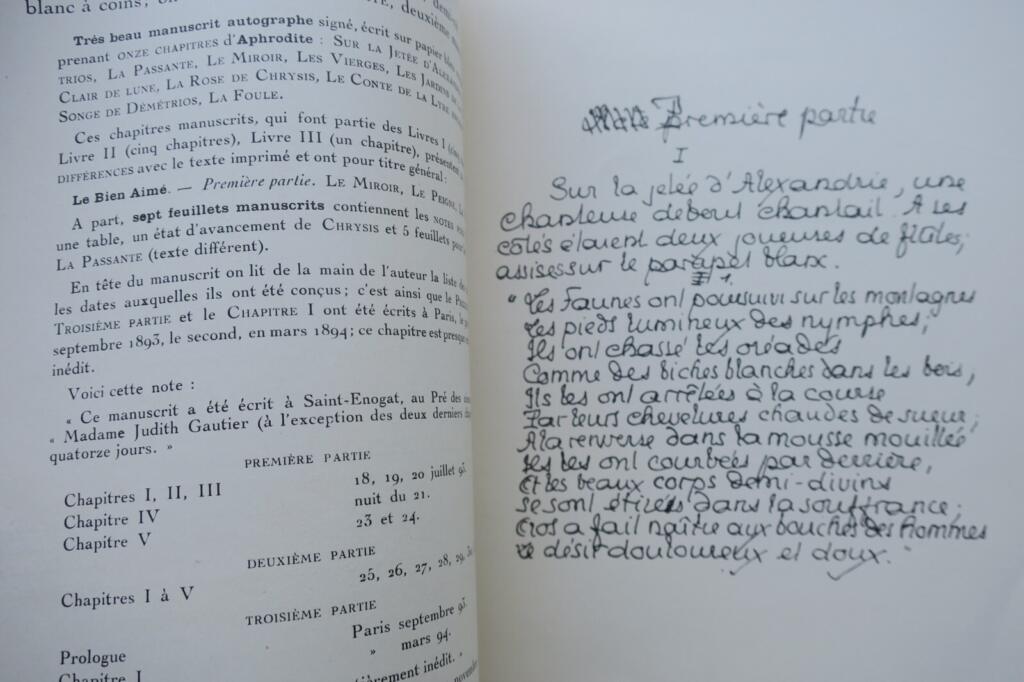 blanc à coins,
deuxième
Très beau manuscrit autographe signé, écrit sur papier
prenant ONZE CHAPITRES d'Aphrodite : SUR LA JETÉE
TRIOS, LA PASSANTE, LE MIROIR, LES VIERGES, LES JARDINS
CLAIR DE LUNE, LA ROSE DE CHRYSIS, LE CONTE DE LA LYRE
SONGE DE DÉMÉTRIOS, LA FOULE.
Ces chapitres manuscrits, qui font partie des Livres I
Livre II (cinq chapitres), Livre III (un chapitre),
DIFFÉRENCES avec le texte imprimé et ont pour titre général :
Le Bien Aimé. — Première partie. LE MIROIR, LE PEIGNE,
A part, sept feuillets manuscrits contiennent les NOTES
une table, un état d'avancement de CHRYSIS et 5 feuillets
LA PASSANTE (texte différent).
En tête du manuscrit on lit de la main de l'auteur la liste
les dates auxquelles ils ont été conçus ; c'est ainsi que le
TROISIÈME PARTIE et le CHAPITRE I ont été écrits à Paris,
septembre 1893, le second, en mars 1894 ; ce chapitre est
inédit.
Voici cette note :
« Ce manuscrit a été écrit à Saint-Enogat, au Pré des
« Madame Judith Gautier (à l'exception des deux derniers
quatorze jours. »
PREMIÈRE PARTIE
Chapitres I, II, III 18, 19, 20 juillet 93.
Chapitre IV nuit du 21.
Chapitre V 23 et 24.
DEUXIÈME PARTIE
Chapitres I à V 25, 26, 27, 28, 29,
TROISIÈME PARTIE
Prologue Paris septembre 93.
Chapitre I » mars 94.
inédit. »
Première partie
I
Sur la jetée d'Alexandrie, une
chanteuse debout chantait. A ses
côtés étaient deux joueuses de flûtes,
assises sur le parapet blanc.
1.
" Les Faunes ont poursuivi sur les montagnes
Les pieds lumineux des nymphes ;
Ils ont chassé les oréades
Comme des biches blanches dans les bois,
Ils les ont arrêtées à la course
Par leurs chevelures chaudes de sueur ;
A la renverse dans la mousse mouillée
Ils les ont courbées par derrière,
Et les beaux corps demi-divins
Se sont étirés dans la souffrance ;
Eros a fait naître aux bouches des Hommes
le désir douloureux et doux. "